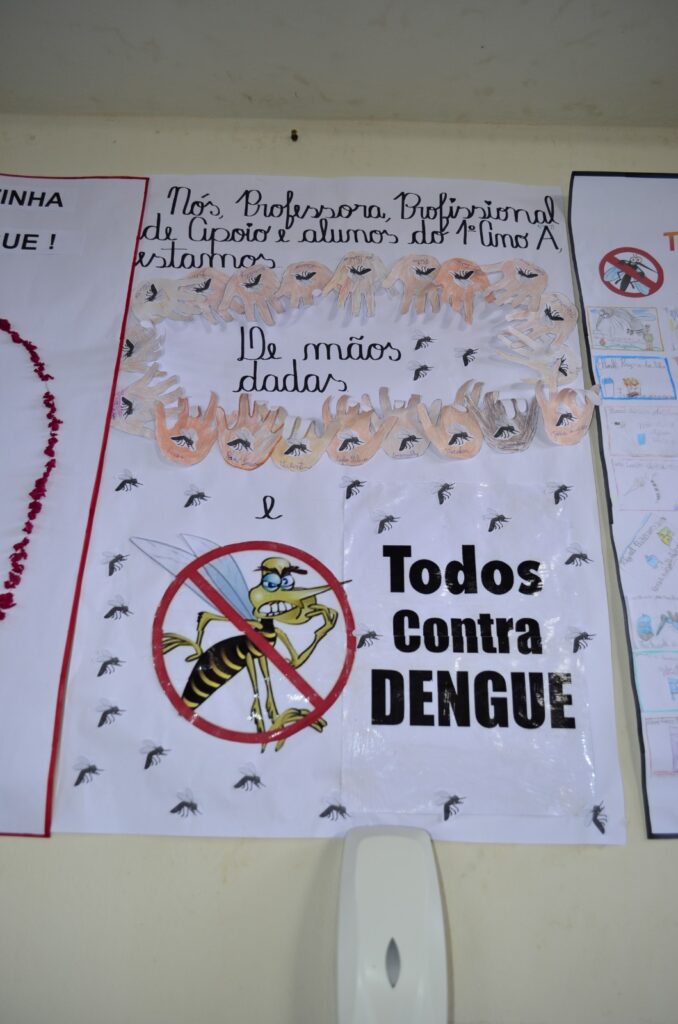 INHA
UE !
Nós, Professora, Profissional
de Apoio e alunos do 1º Ano A,
estamos
De mãos
dadas
e
Todos
Contra
DENGUE